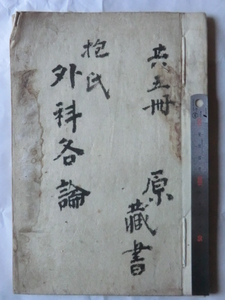 共五冊
原藏書
抱氏
外科各論